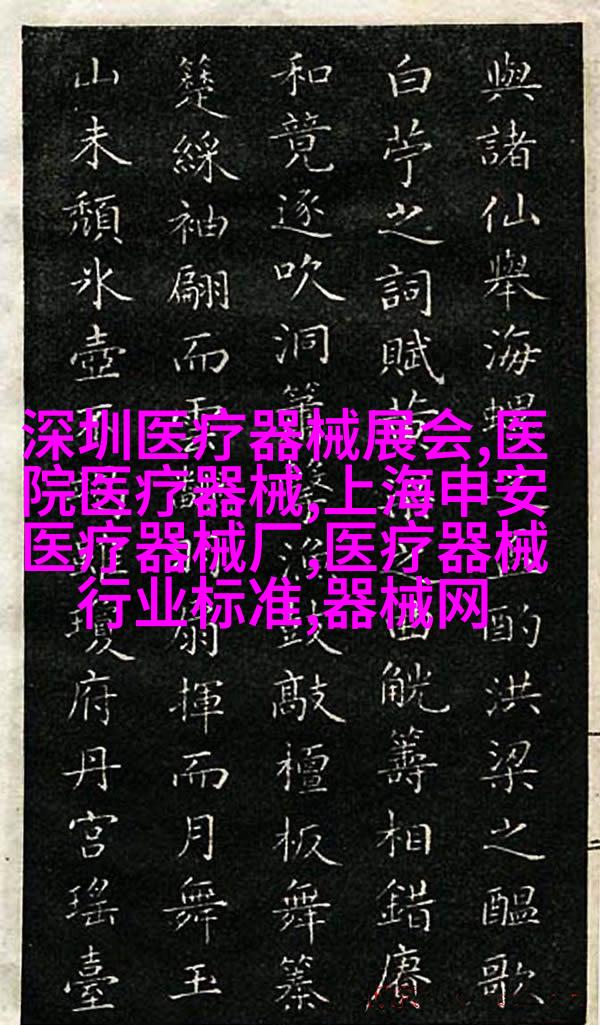 與諸仙舉海螺酌洪梁之醞歌
白苧之詞賦之曲觥籌相錯賡
和竟逐吹洞簫鼓敲檀板舞
綵袖翩而雲扇揮而月舞玉
山未頹氷壺瓊府丹宮瑤臺
深圳医疗器械展会,医
院医疗器械,上海申安
医疗器械厂,医疗器械
行业标准,器械网